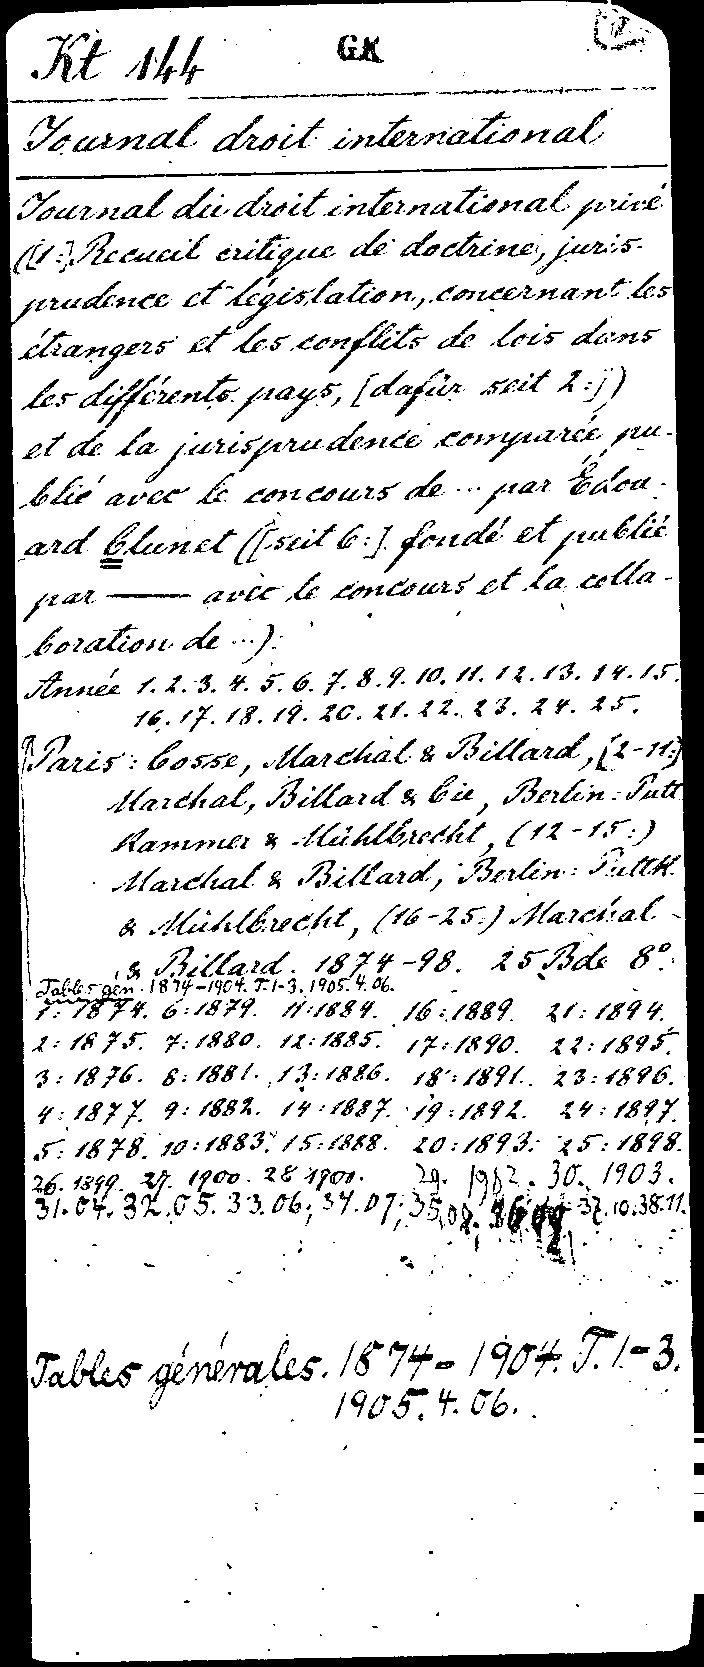 Kt 144 GK
Journal droit international
Journal du droit international privé
([1:] Recueil critique de doctrine, juris-
prudence et législation, concernant les
étrangers et les conflits de lois dans
les différents pays, [dafür seit 2:])
et de la jurisprudence comparée, pu-
blié avec le concours de ... par Édou-
ard Clunet ([seit 6:] fondé et publié
par —— avec le concours et la colla-
boration de ...).
Année 1. 2. 3. 4. 5. 6. 7. 8. 9. 10. 11. 12. 13. 14. 15.
16. 17. 18. 19. 20. 21. 22. 23. 24. 25.
Paris: Cosse, Marchal & Billard, (2-11:)
Marchal, Billard & Cie, Berlin: Putt
kammer & Mühlbrecht, (12-15:)
Marchal & Billard, Berlin: Puttk.
& Mühlbrecht, (16-25:) Marchal
& Billard. 1874-98. 25 Bde 8°.
Tables gén. 1874-1904. T. 1-3. 1905. 4. 06.
1: 1874. 6: 1879. 11: 1884. 16: 1889. 21: 1894.
2: 1875. 7: 1880. 12: 1885. 17: 1890. 22: 1895.
3: 1876. 8: 1881. 13: 1886. 18: 1891. 23: 1896.
4: 1877. 9: 1882. 14: 1887. 19: 1892. 24: 1897.
5: 1878. 10: 1883. 15: 1888. 20: 1893. 25: 1898.
26. 1899. 27. 1900. 28 1901. 29. 1902. 30. 1903.
31. 04. 32. 05. 33. 06; 34. 07; 35, 08. 36 09 37. 10. 38. 11.
Tables générales. 1874-1904. T. 1-3.
1905. 4. 06.